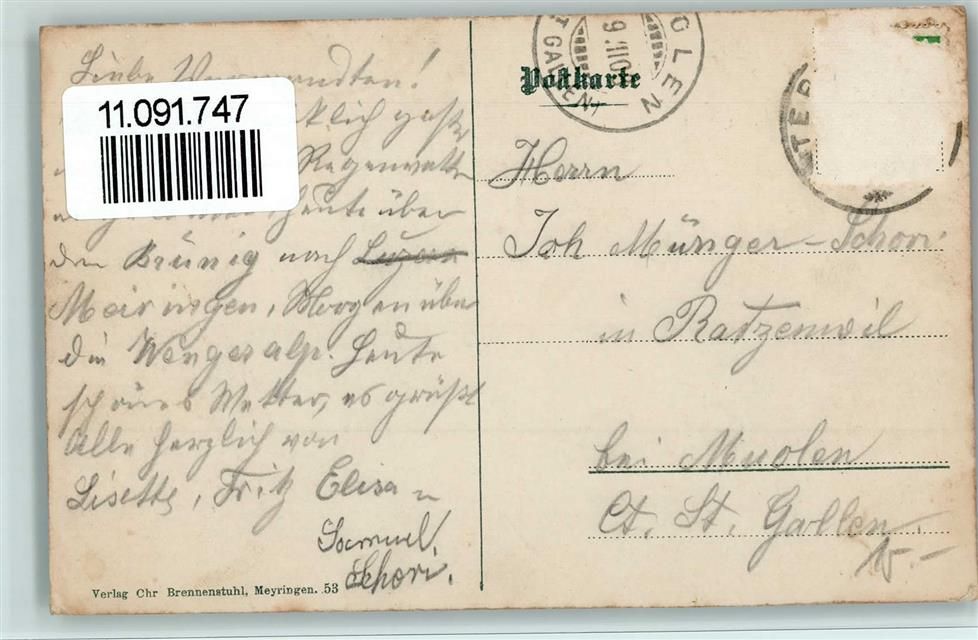 Liebe Verwandten!
11.091.747
Regenwetter
Heute über
den Brünig nach Luzern
Meiringen, Morgen über
die Wengeralp. Heute
schönes Wetter, es grüßt
alle herzlich von
Lisette, Fritz Elisa u
Samuel
Schori.
Verlag Chr Brennenstuhl, Meyringen. 53
Postkarte
GLEN
9.III0
ST GALLEN
TER
Herrn
Joh Münger-Schori
in Ratzenwil
bei Muolen
Ct. St. Gallen.
15.-